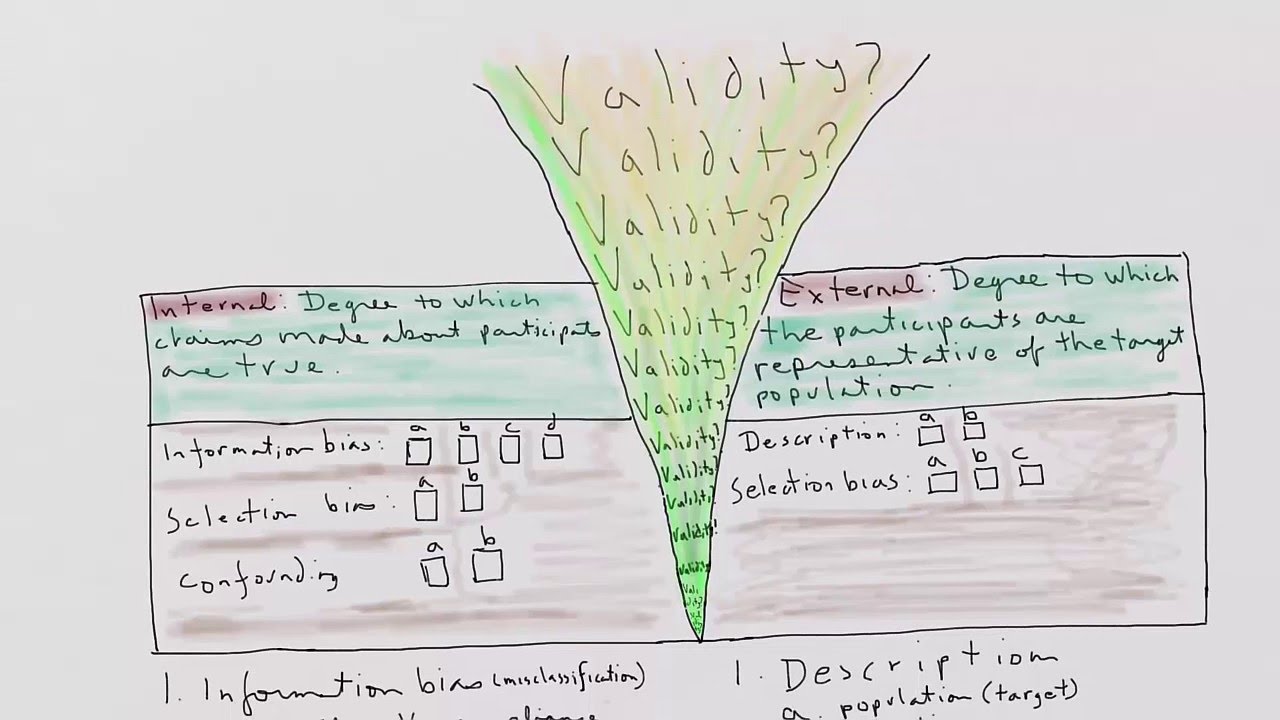 Validity?
Validity?
Validity?
Validity?
Validity?
Validity?
Validity?
Validity?
Validity?
Validity?
Validity!
Validity
Internal: Degree to which
claims made about participants
are true.
Information bias: a b c d
Selection bias: a b
Confounding a b
External: Degree to which
the participants are
representative of the target
population.
Description: a b
Selection bias: a b c
1. Information bias (misclassification)
1. Description
a. population (target)